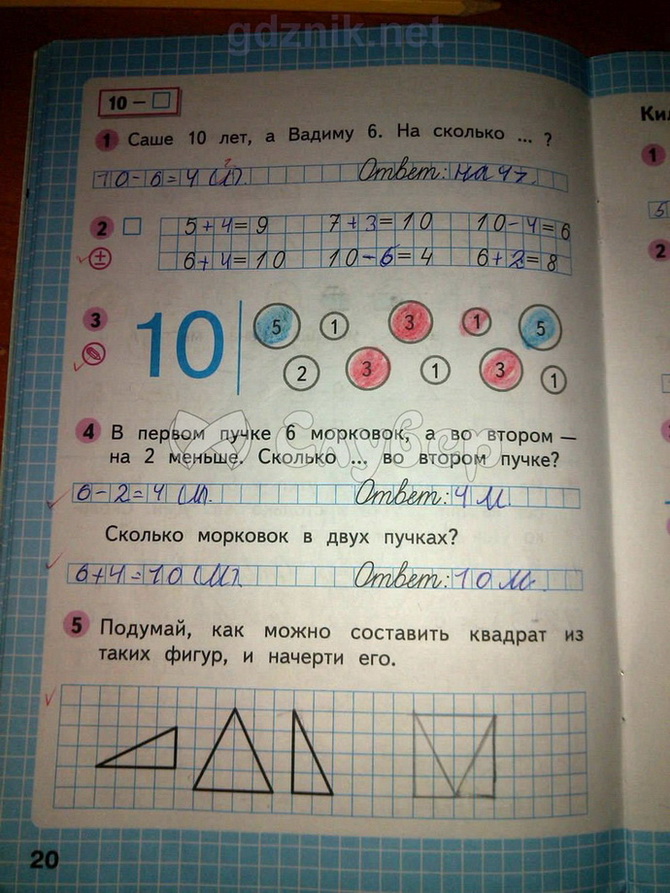 gdznik.net
10 – □
1 Саше 10 лет, а Вадиму 6. На сколько ... ?
10-6=4 (л). Ответ: на 4 г.
2 □ 5+4=9 7+3=10 10-4=6
± 6+4=10 10-6=4 6+2=8
3 10 5 1 3 1 5
2 3 1 3 1
Слувер
4 В первом пучке 6 морковок, а во втором —
на 2 меньше. Сколько ... во втором пучке?
6-2=4 (м). Ответ: 4 м.
Сколько морковок в двух пучках?
6+4=10 (м). Ответ: 10 м.
5 Подумай, как можно составить квадрат из
таких фигур, и начерти его.
20
Ки
1
5
2